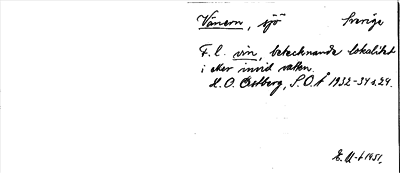 Vänern, sjö Sverige
F. l. vin, betecknande lokalitet
i eller invid vatten.
H. O. Östberg, S.O.Å 1932-34 s. 29.
E. U-t 1951.